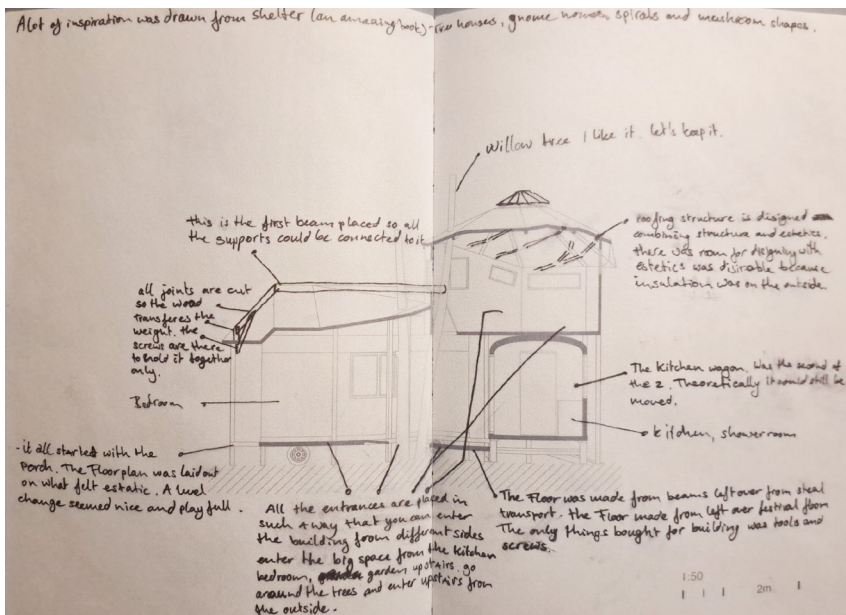 A lot of inspiration was drawn from shelter (an amazing book) - tree houses, gnome homes, spirals and mushroom shapes.
Willow tree I like it. let's keep it.
this is the first beam placed so all
the supports could be connected to it
roofing structure is disigned
combining structure and estetics.
there was room for disigning with
estetics was disirable because
insulation was on the outside.
all joints are cut
so the wood
transferes the
weight. the
screws are there
to hold it together
only.
The kitchen wagon. Was the second of
the 2. Theoretically it could still be
moved.
Bedroom
kitchen, showerroom
- it all started with the
porch. The Floorplan was laid out
on what felt estatic. A level
change seemed nice and play full.
All the entrances are placed in
such a way that you can enter
the building from different sides
enter the big space from the kitchen
bedroom, garden upstairs. go
around the trees and enter upstairs from
the outside.
The Floor was made from beams left over from steal
transport. the Floor made from left over festival floor
The only things bought for building was tools and
screws.
1:50
2m